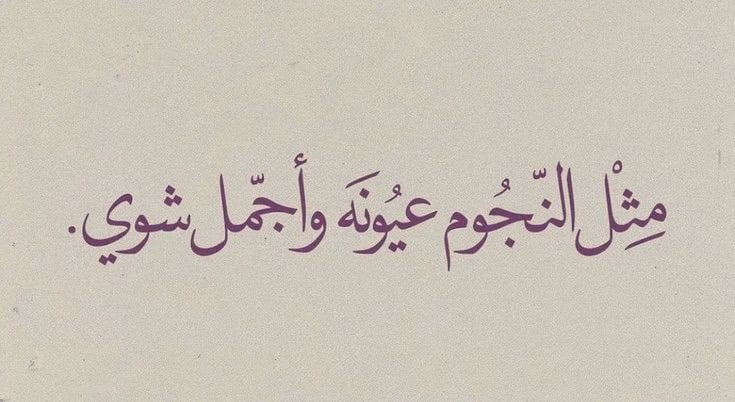 مِثْل النّجُوم عيُونَه وأجمّل شوي.